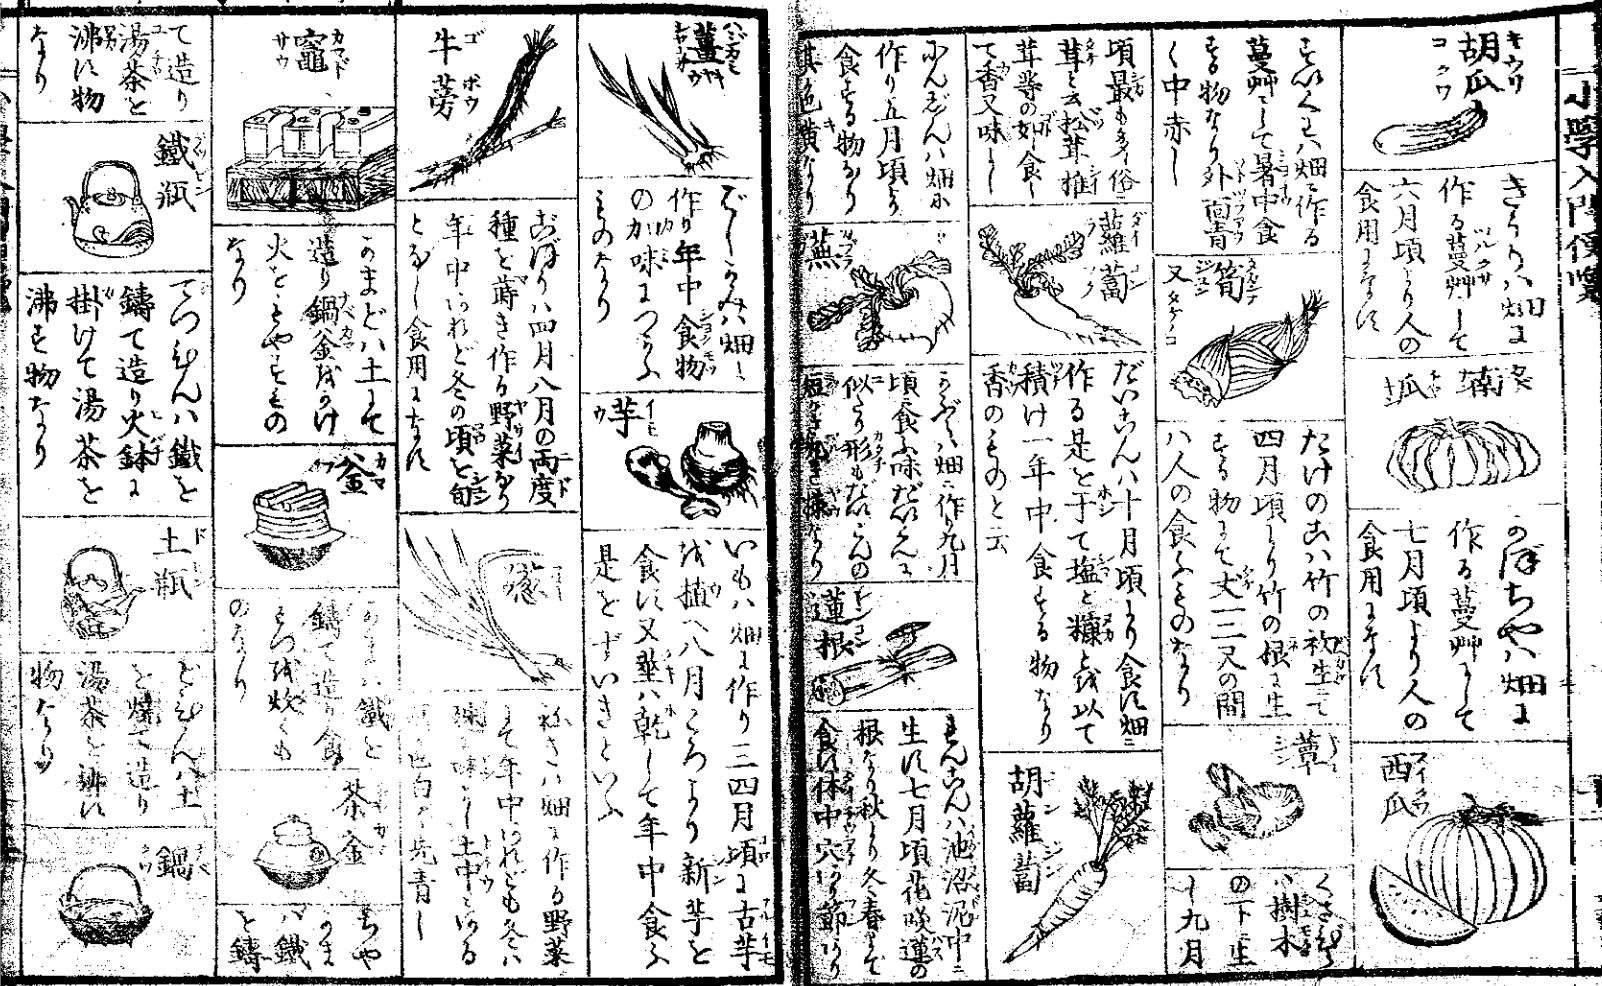 小學入門便覽
胡瓜
キウリ
コクワ
きうりハ畑に
作る蔓艸にして
六月頃より人の
食用になす
南瓜
かぼちやハ畑に
作る蔓艸にして
七月頃より人の
食用になす
西瓜
スイクワ
すいくわハ畑に作る
蔓艸にして暑中食
する物なり外面青
く中赤し
筍
又タケノコ
たけのこハ竹の初生にて
四月頃より竹の根に生
する物にて丈一二尺の間
ハ人の食ふものなり
蕈
くさびら
ハ樹木
の下に生
し九月
頃最も多く俗ニ
茸と云松茸推
茸等の如し食し
て香又味し
蘿蔔
ダイコン
だいこんハ十月頃より食す畑ニ
作る是を干て塩と糠とを以て
積け一年中食する物なり
香のものと云
胡蘿蔔
ニンジン
にんじんハ畑に
作り五月頃より
食する物なり
其色黄なり
蕪
かぶらハ畑ニ作り九月
頃食ふ味だいこんに
似たり形もだいこんの
短かき丸き様なり
蓮根
レンコン
れんこんハ池沼泥中ニ
生す七月頃花咲蓮の
根なり秋より冬春まで
食す休中穴あり節あり
薑
ハジカミ
はじかみハ畑に
作り年中食物
の加味につかふ
ものなり
芋
イモ
ウ
いもハ畑に作り三四月頃に古芋
を植へ八月ころより新芋を
食す又莖ハ乾して年中食ふ
是をずいきといふ
牛蒡
ゴボウ
ごぼうハ四月八月の両度
種を蒔き作る野菜なり
年中あれど冬の頃を旬
とすし食用になす
葱
ねぎハ畑に作る野菜
にて年中あれども冬ハ
土中にある
色白く先青し
竈
カマド
サウ
かまどハ土にて
造り鍋釜をかけ
火をもやすもの
なり
釜
カマ
フ
かまハ鐵を
鑄て造り食
もつを炊くも
のなり
茶釜
ちや
がま
ハ鐵
を鑄
て造り
湯茶を
沸す物
なり
鐵瓶
てつびんハ鐵を
鑄て造り火鉢に
掛けて湯茶を
沸す物なり
土瓶
ドビン
どびんハ土
を燒て造り
湯茶を沸す
物なり
鍋